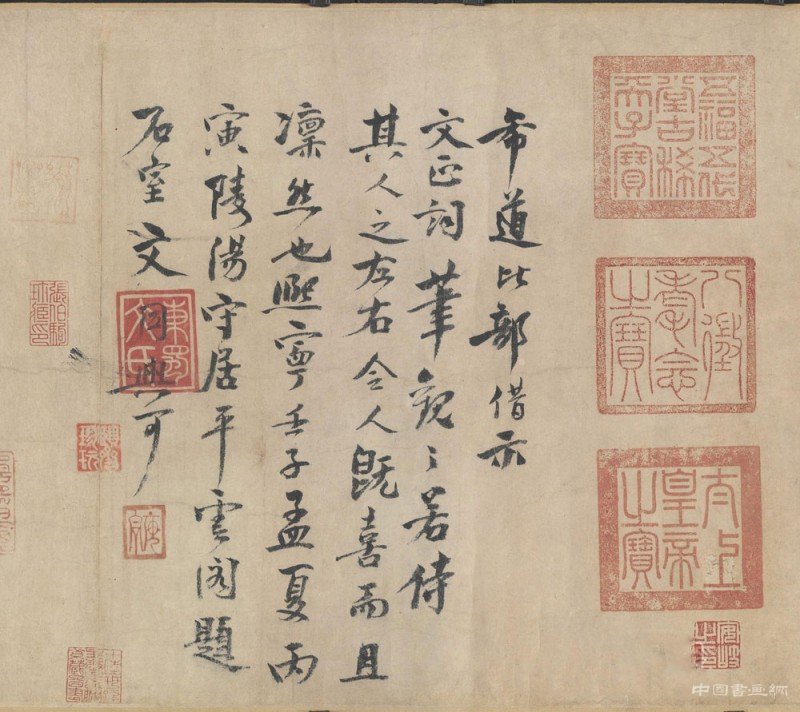 五福五代堂古稀天子寶
八徵耄念之寶
太上皇帝之寶
希道比部借示
文正詞筆觀之若侍
其人之左右令人既喜而且
凜然也熙寧壬子孟夏丙
寅陵陽守居平雲閣題
石室文同與可
東蜀文氏
張伯駒珍藏印
中国書画網